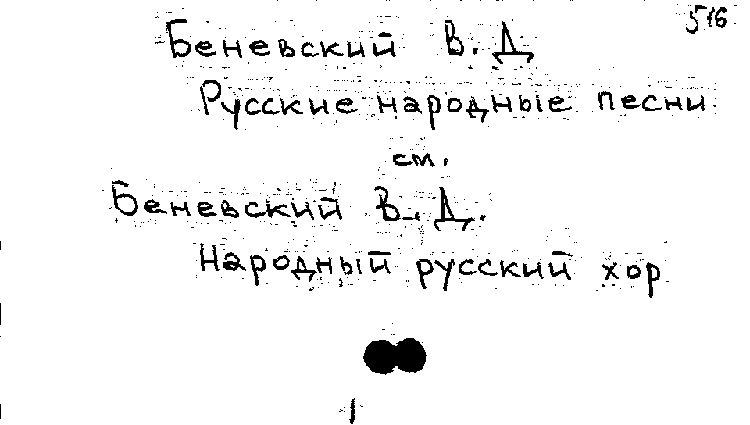 516
Беневский В. Д
Русские народные песни
см.
Беневский В. Д.
Народный русский хор
1